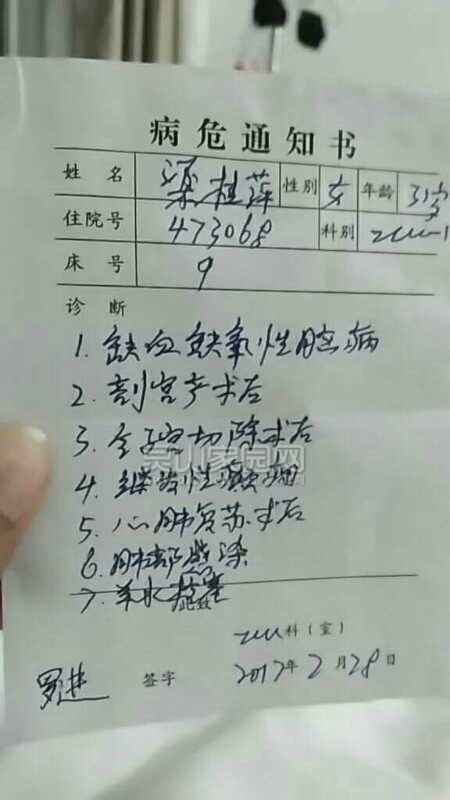 病危通知书
姓名 梁桂萍 性别 女 年龄 31岁
住院号 473068 科别 ICU-1
床号 9
诊断
1. 缺血缺氧性脑病
2. 剖宫产术后
3. 全子宫切除术后
4. 继发性癫痫
5. 心肺复苏术后
6. 肺部感染
7. 羊水栓塞
此致
ICU 科(室)
签字 2017年2月28日